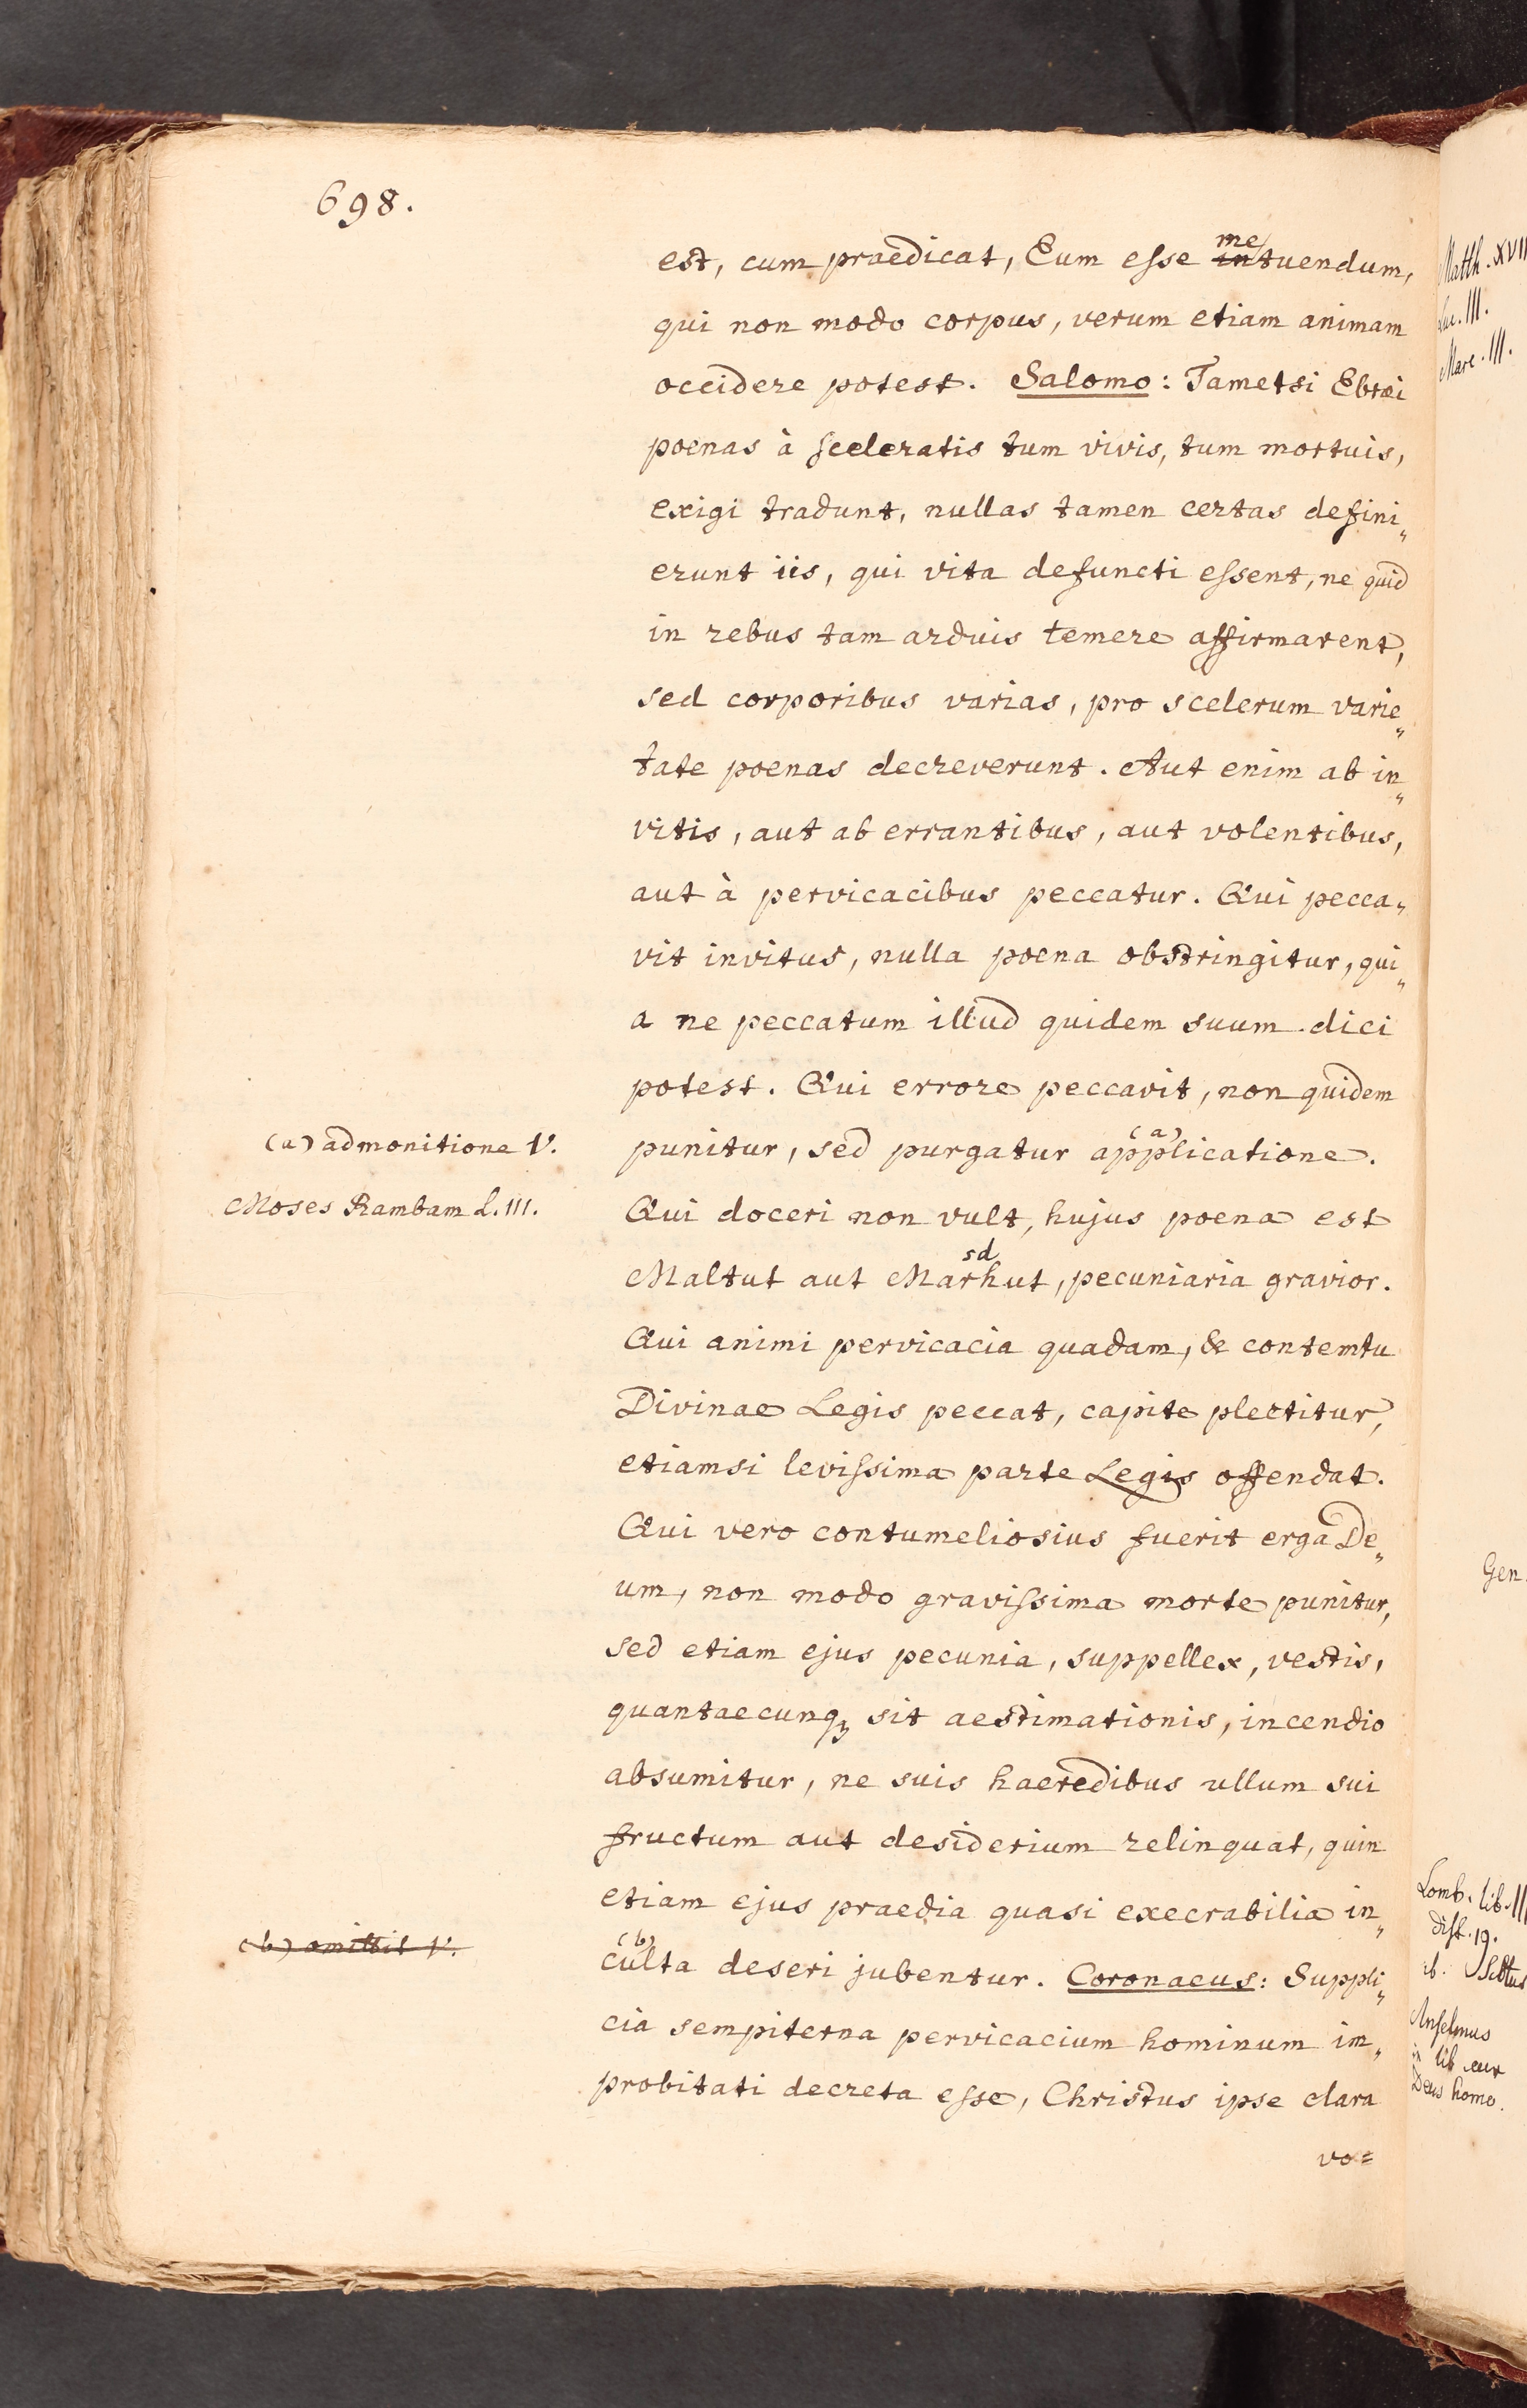 698.
est, cum praedicat, Eum esse me intuendum,
qui non modo corpus, verum etiam animam
occidere potest. Salomo: Tametsi Ebræi
poenas à sceleratis tum vivis, tum mortuis,
exigi tradunt, nullas tamen certas defini„
erunt iis, qui vita defuncti essent, ne quid
in rebus tam arduis temere affirmarent,
sed corporibus varias, pro scelerum varie„
tate poenas decreverunt. Aut enim ab in„
vitis, aut ab errantibus, aut volentibus,
aut à pervicacibus peccatur. Qui pecca„
vit invitus, nulla poena obstringitur, qui„
a ne peccatum illud quidem suum dici
potest. Qui errore peccavit, non quidem
(a) admonitione V.
punitur, sed purgatur (a) applicatione.
Moses Rambam L. III.
Qui doceri non vult, hujus poena est
sd
Maltut aut Marhut, pecuniaria gravior.
Qui animi pervicacia quadam, & contemtu
Divinae Legis peccat, capite plectitur,
etiamsi levissima parte Legis offendat.
Qui vero contumeliosius fuerit erga De„
um, non modo gravissima morte punitur,
sed etiam ejus pecunia, suppellex, vestis,
quantaecunqȝ sit aestimationis, incendio
absumitur, ne suis haeredibus ullum sui
fructum aut desiderium relinquat, quin
etiam ejus praedia quasi execrabilia in„
(b) omittit V.
(b) culta deseri jubentur. Coronaeus: Suppli„
cia sempiterna pervicacium hominum im„
probitati decreta esse, Christus ipse clara
vo=
Matth. XVII
Luc. III.
Marc. III.
Gen.
Lomb. lib. III
dist. 19.
ib.
Anselmus
in lib. cur
Deus homo.